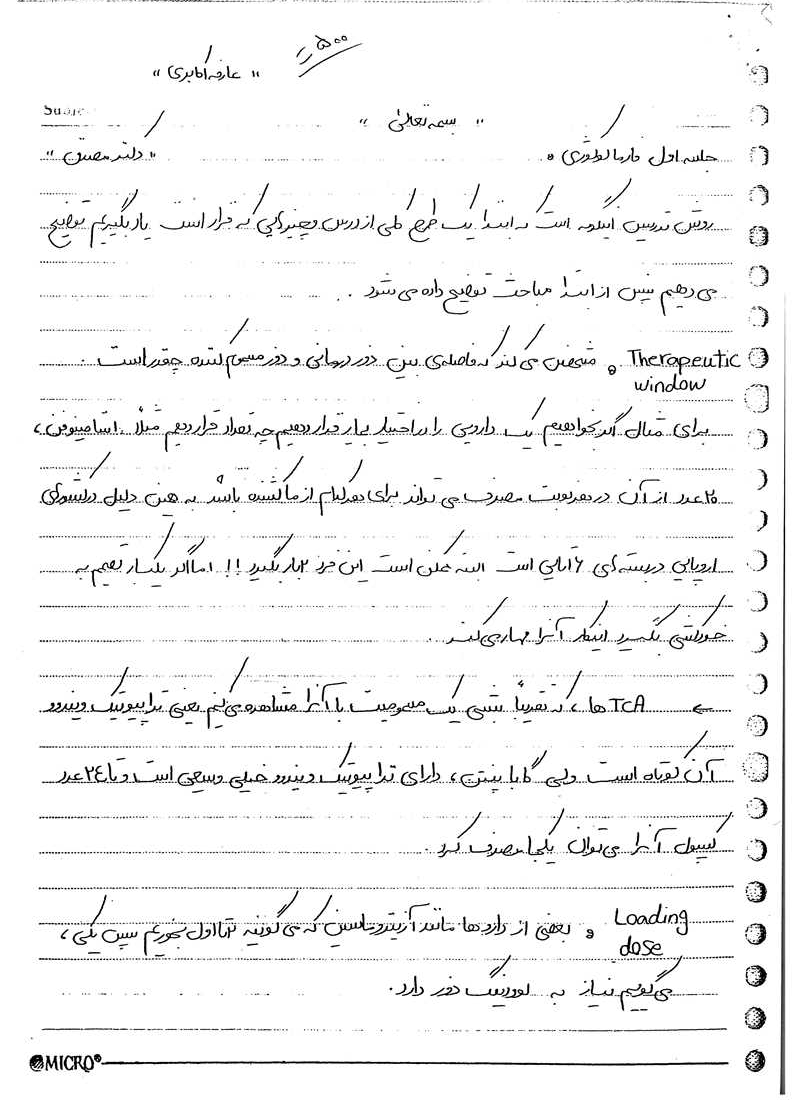 ۵۰۰ ت
" عارفه اکابری "
Subje
" بسمه تعالی "
جلسه اول فارماکولوژی : " دکتر مصدق "
روش تدریس اینگونه است که ابتدا یک طرح کلی از درس و چیزهایی که قرار است یاد بگیریم توضیح
می دهیم سپس از ابتدا مباحث توضیح داده می شود .
Therapeutic window : مشخص می کند که فاصله ی بین دوز درمانی و دوز مسموم کننده چقدر است .
برای مثال اگر بخواهیم یک دارویی را در اختیار بیمار قرار دهیم چه تعداد قرار دهیم مثلاً استامینوفن ،
۲۰ عدد از آن در هر نوبت مصرف می تواند برای هر کدام از ما کشنده باشد به همین دلیل در کشورهای
اروپایی در بسته های ۶ تایی است البته ممکن است این فرد ۲ بار بگیرد !! اما اگر یکبار تصمیم به
خودکشی بگیرد اینکار آنرا مهار می کند .
← TCA ها ، که تقریباً شبی یک مسمومیت با آنرا مشاهده می کنیم یعنی تراپیوتیک ویندوو
آن کوتاه است ولی گاباپنتین ، دارای تراپیوتیک ویندوو خیلی وسیعی است و تا ۲۴ عدد
کپسول آنرا می توان یکجا مصرف کرد .
Loading dose : بعضی از داروها مانند آزیترومایسین که می گویند ۲ تا اول بخوریم سپس یکی ،
می گوییم نیاز به لودینگ دوز دارد .
MICRO